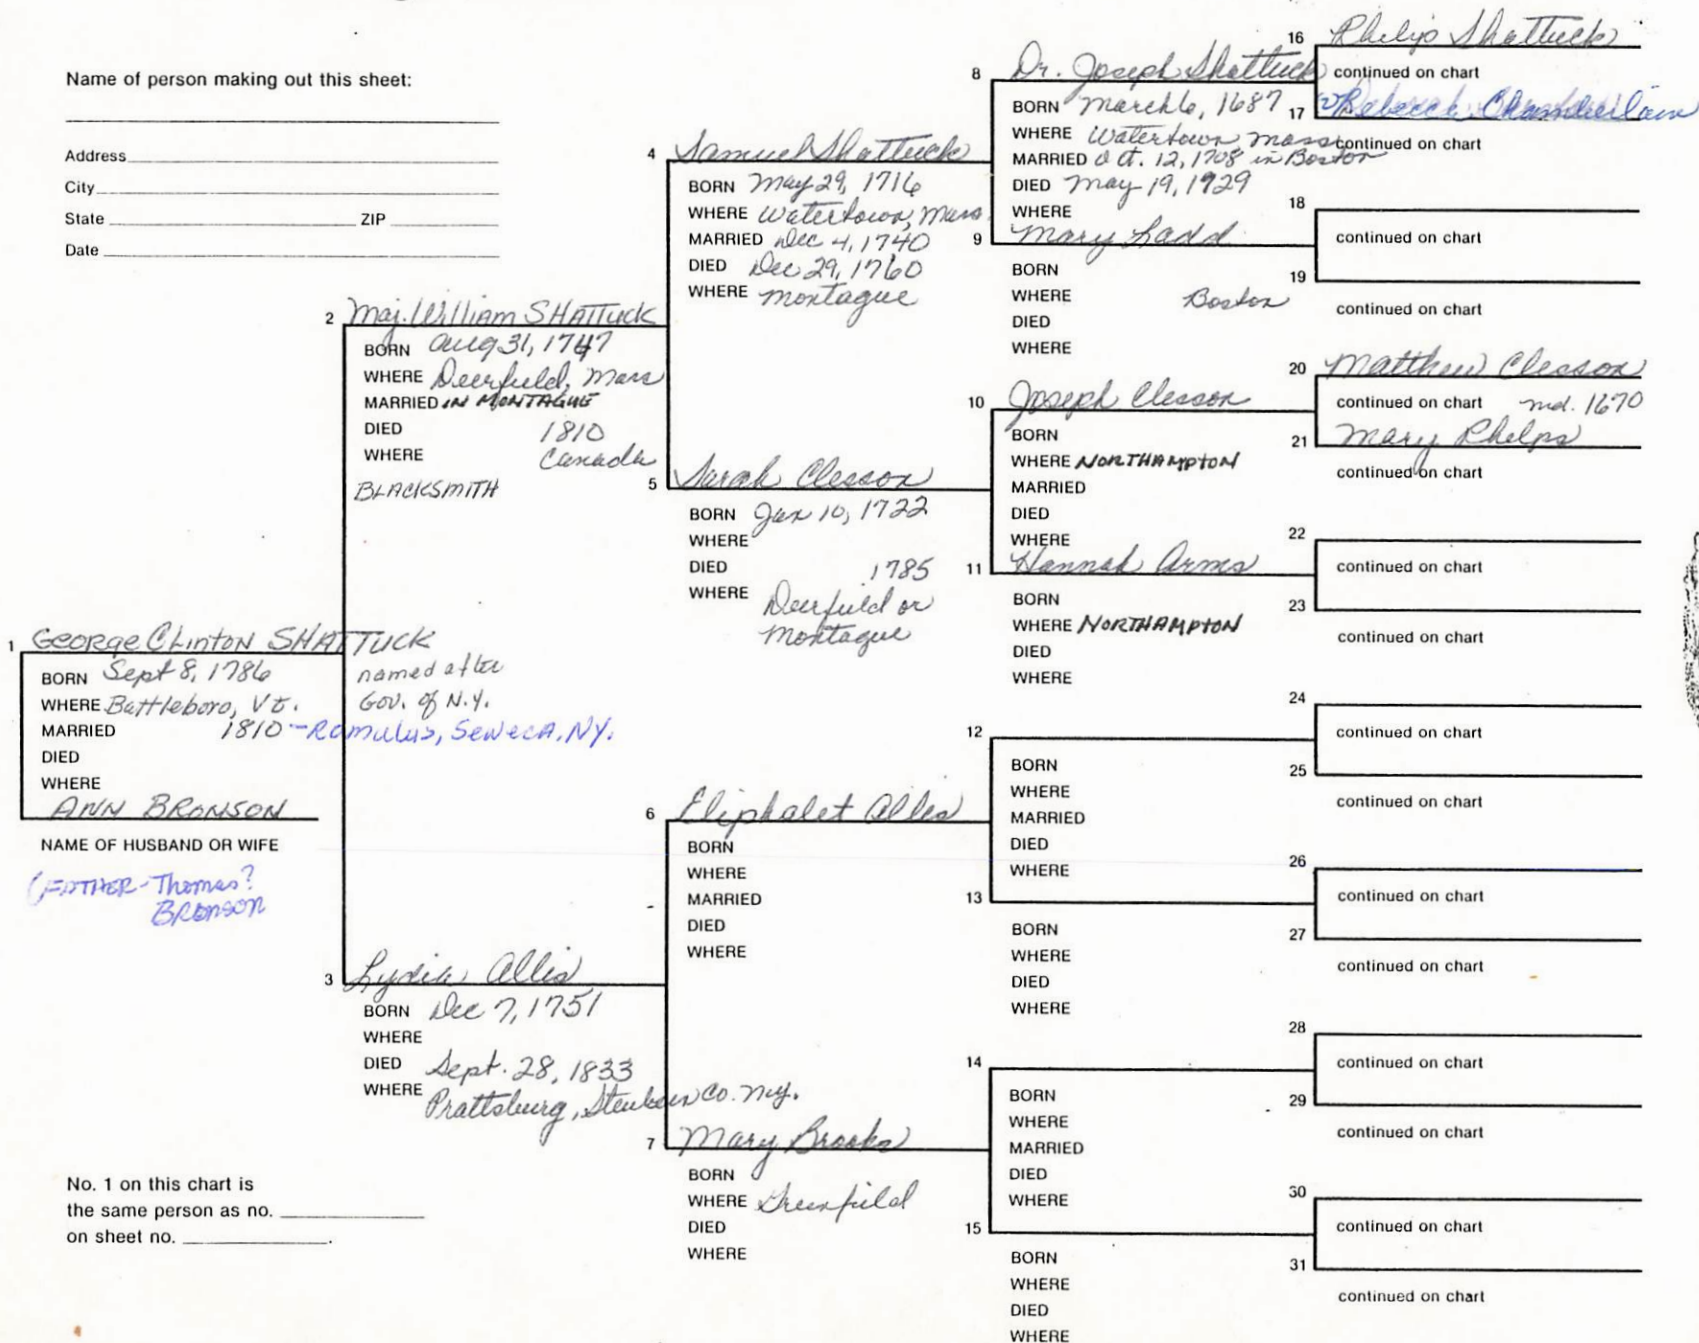 Name of person making out this sheet:
Address
City
State ZIP
Date
1 George Clinton SHATTUCK
BORN Sept 8, 1786
WHERE Battleboro, Vt.
MARRIED 1810 - Romulus, Seneca, NY.
DIED
WHERE
named after
Gov. of N.Y.
ANN BRONSON
NAME OF HUSBAND OR WIFE
(FATHER - Thomas?
BRONSON
2 Maj. William SHATTUCK
BORN Aug 31, 1747
WHERE Deerfield, Mass
MARRIED IN MONTAGUE
DIED 1810
WHERE Canada
BLACKSMITH
3 Lydia Allis
BORN Dec 7, 1751
WHERE
DIED Sept. 28, 1833
WHERE Prattsburg, Steuben Co. N.Y.
4 Samuel Shattuck
BORN May 29, 1716
WHERE Watertown, Mass
MARRIED Dec 4, 1740
DIED Dec 29, 1760
WHERE Montague
5 Sarah Clesson
BORN Jan 10, 1722
WHERE
DIED 1785
WHERE Deerfield or
Montague
6 Eliphalet Allis
BORN
WHERE
MARRIED
DIED
WHERE
7 Mary Brooks
BORN
WHERE Greenfield
DIED
WHERE
8 Dr. Joseph Shattuck
BORN March 6, 1687
WHERE Watertown, Mass
MARRIED Oct. 12, 1708 in Boston
DIED May 19, 1929
WHERE
9 Mary Ladd
BORN
WHERE Boston
DIED
WHERE
10 Joseph Clesson
BORN
WHERE NORTHAMPTON
MARRIED
DIED
WHERE
11 Hannah Arms
BORN
WHERE NORTHAMPTON
DIED
WHERE
12
BORN
WHERE
MARRIED
DIED
WHERE
13
BORN
WHERE
DIED
WHERE
14
BORN
WHERE
MARRIED
DIED
WHERE
15
BORN
WHERE
DIED
WHERE
16 Philip Shattuck
continued on chart
17 (2) Rebecca Chamberlain
continued on chart
18
continued on chart
19
continued on chart
20 Matthew Clesson
continued on chart md. 1670
21 Mary Phelps
continued on chart
22
continued on chart
23
continued on chart
24
continued on chart
25
continued on chart
26
continued on chart
27
continued on chart
28
continued on chart
29
continued on chart
30
continued on chart
31
continued on chart
No. 1 on this chart is
the same person as no.
on sheet no.